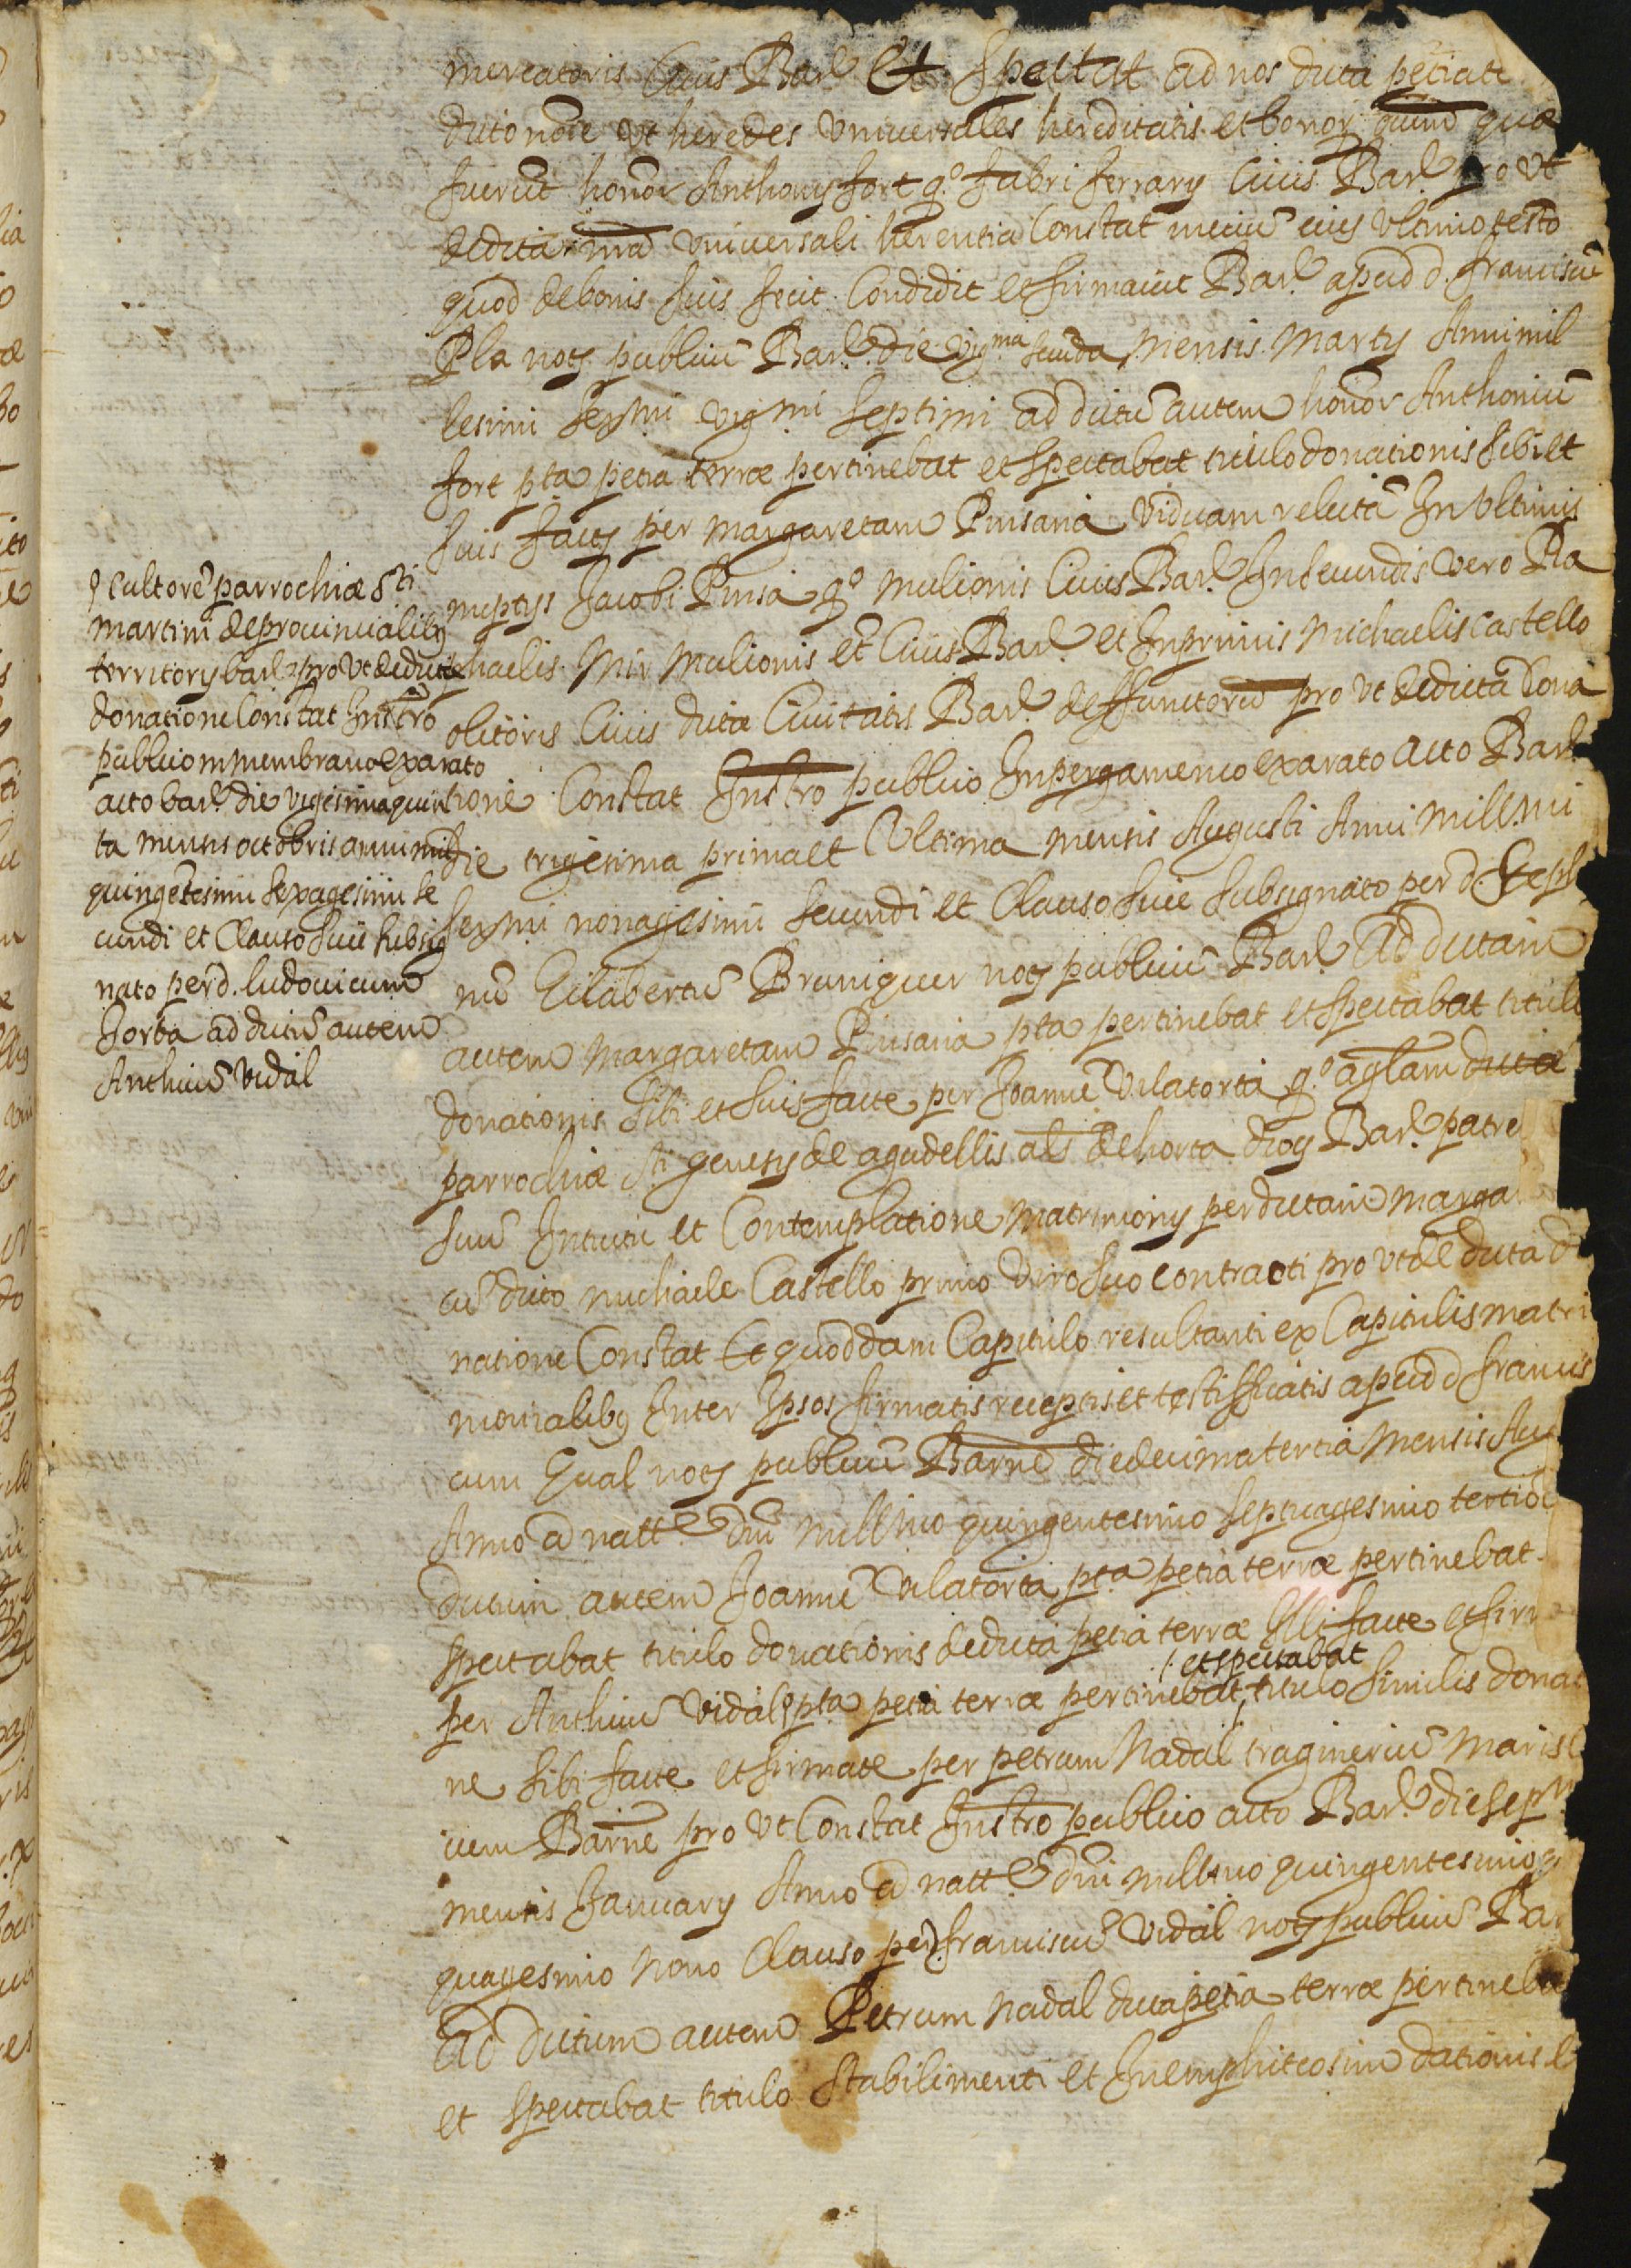 mercatoris Civis Bar. Et Spectat ad nos dicta petia te
dicto noīe Vt heredes Vniversales hereditatis et bonor quae
fuerūt honor Anthony fort q.º fabri ferrary Civis Bar. pro Vt
de dicta universali herentia Constat mediū eius Vltimo testo
quod de bonis suis fecit Condidit et firmavit Bar. apud d. franciscū
Pla noty publicū Bar. die vig.ma secūda Mensis Marty Anni mil
lesimi sex.mi vig.mi septimi ad dictū autem honor Anthoniū
fort p.ta petia terrae pertinebat et spectabat titulo donationis sibi et
suis facty per Margaretam Pinsana Viduam relictā In Vltimis
nuptys Jacobi Pinsa q.º Mulionis Civis Bar. In secundis vero Mi
chaelis Mir Mulionis et Civis Bar. et Inprimis Michaelis Castello
olitoris Civis dicta Civitatis Bar. deffunctorū pro Vt de dicta dona
tione Constat Instro publico In pergameneo exarato acto Bar.
die trigesima prima et Vltima mensis Augusti Anni Mill.mi
sex.mi nonagesimi secundi et Clauso sive subsignato per d. Steph
nū Gilabertū Bruniquer noty publicū Bar. Ad dictam
autem Margaretam Pinsana p.ta pertinebat et spectabat titulo
donationis sibi et suis facte per Joannē Vilatorta q.º aglam dicta
parrochiae Sti genesy de agudellis als de horta diocy Bar. patre
suū Intuitu et Contemplatione Matrimony per dictam Marga
cū dicto michaele Castello primo Viro suo contracti pro Vt de dicta d
natione Constat Et quoddam Capitulo resultanti ex Capitulis matri
monialibus Inter Ipsos firmatis receptis et testifficatis apud d francis
cum Gual noty publicū Barnē die decima tertia Mensis Au
Anno a natt.e Dnī mill.mo quingentesimo septuagesimo tertio
Dictum autem Joannē Vilatorta p.ta petia terrae pertinebat
spectabat titulo donationis de dicta petia terrae Illi facte et fir
per Anthiū Vidal p.ta petia terrae pertinebat et spectabat titulo similis donat
ne sibi facte et firmate per petrum Nadal traginerū Maris
vem Barnē pro Vt Constat Instro publico acto Bar. die sep
mensis January Anno a natt.e dnī mill.mo quingentesimo q
quagesimo Nono Clauso per franciscū Vidal noty publicū Ba
Ad dictum autem Petrum Nadal dicta petia terrae pertineba
et spectabat titulo Stabilimenti et In emphiteosim dationis
cultorē parrochiae Sti
martini de provincialibus
territory bar. pro Vt de dicta
donatione Constat Instro
publico in membrano exarato
acto bar. die vigesima quin
ta mensis octobris anni mil
quingētesimi sexagesimi se
cundi et Clauso sive subsig
nato per d. ludovicum
Jorba ad dictū autem
Anthiū Vidal